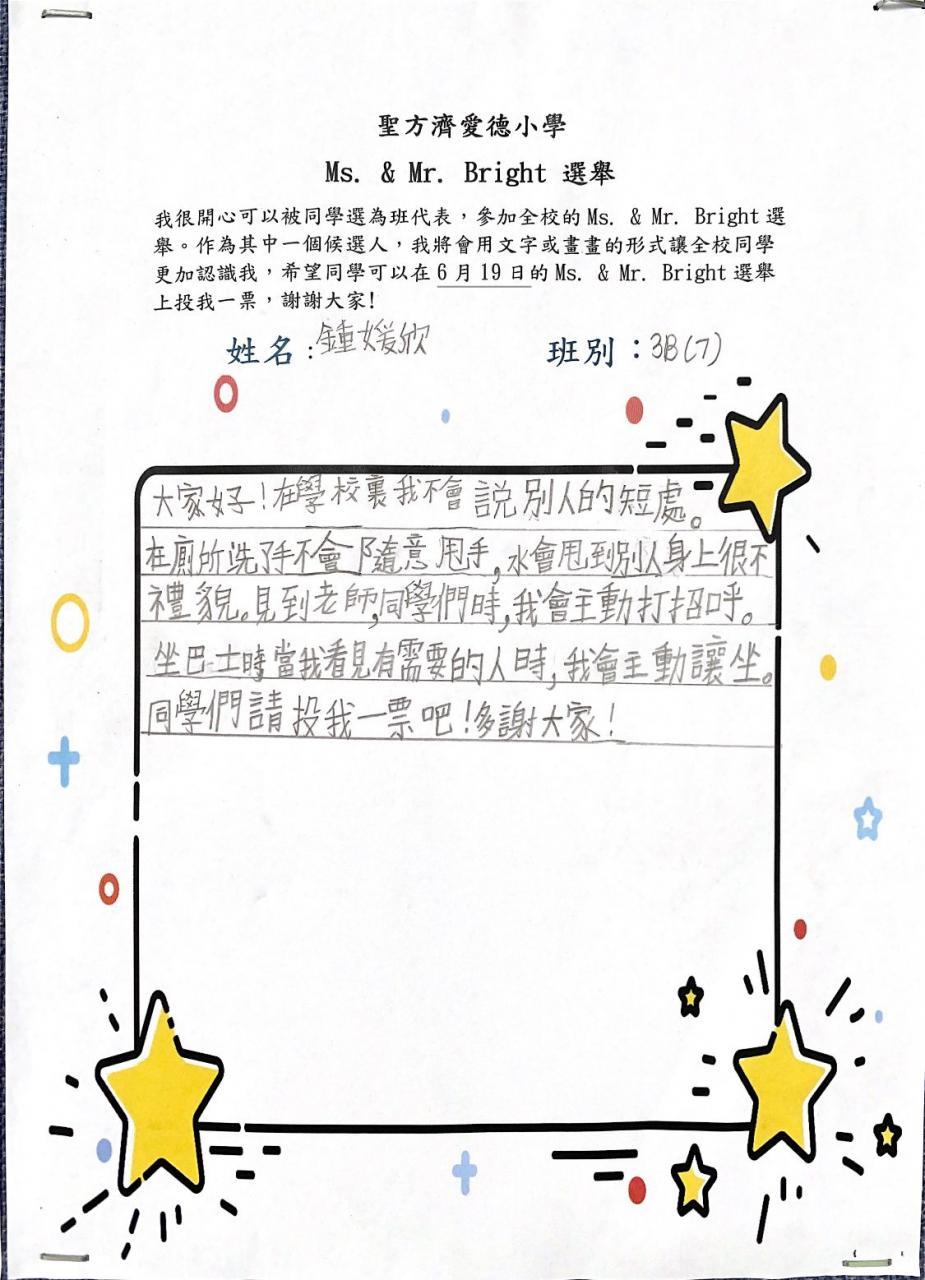 聖方濟愛德小學
Ms. & Mr. Bright 選舉
我很開心可以被同學選為班代表，參加全校的 Ms. & Mr. Bright 選
舉。作為其中一個候選人，我將會用文字或畫畫的形式讓全校同學
更加認識我，希望同學可以在 6 月 19 日的 Ms. & Mr. Bright 選舉
上投我一票，謝謝大家!
姓名：鍾媛欣 班別：3B(7)
大家好！在學校裏我不會說別人的短處。
在廁所洗了手不會隨意甩手，水會甩到別人身上很不
禮貌。見到老師，同學們時，我會主動打招呼。
坐巴士時，當我看見有需要的人時，我會主動讓坐。
同學們請投我一票吧！多謝大家！